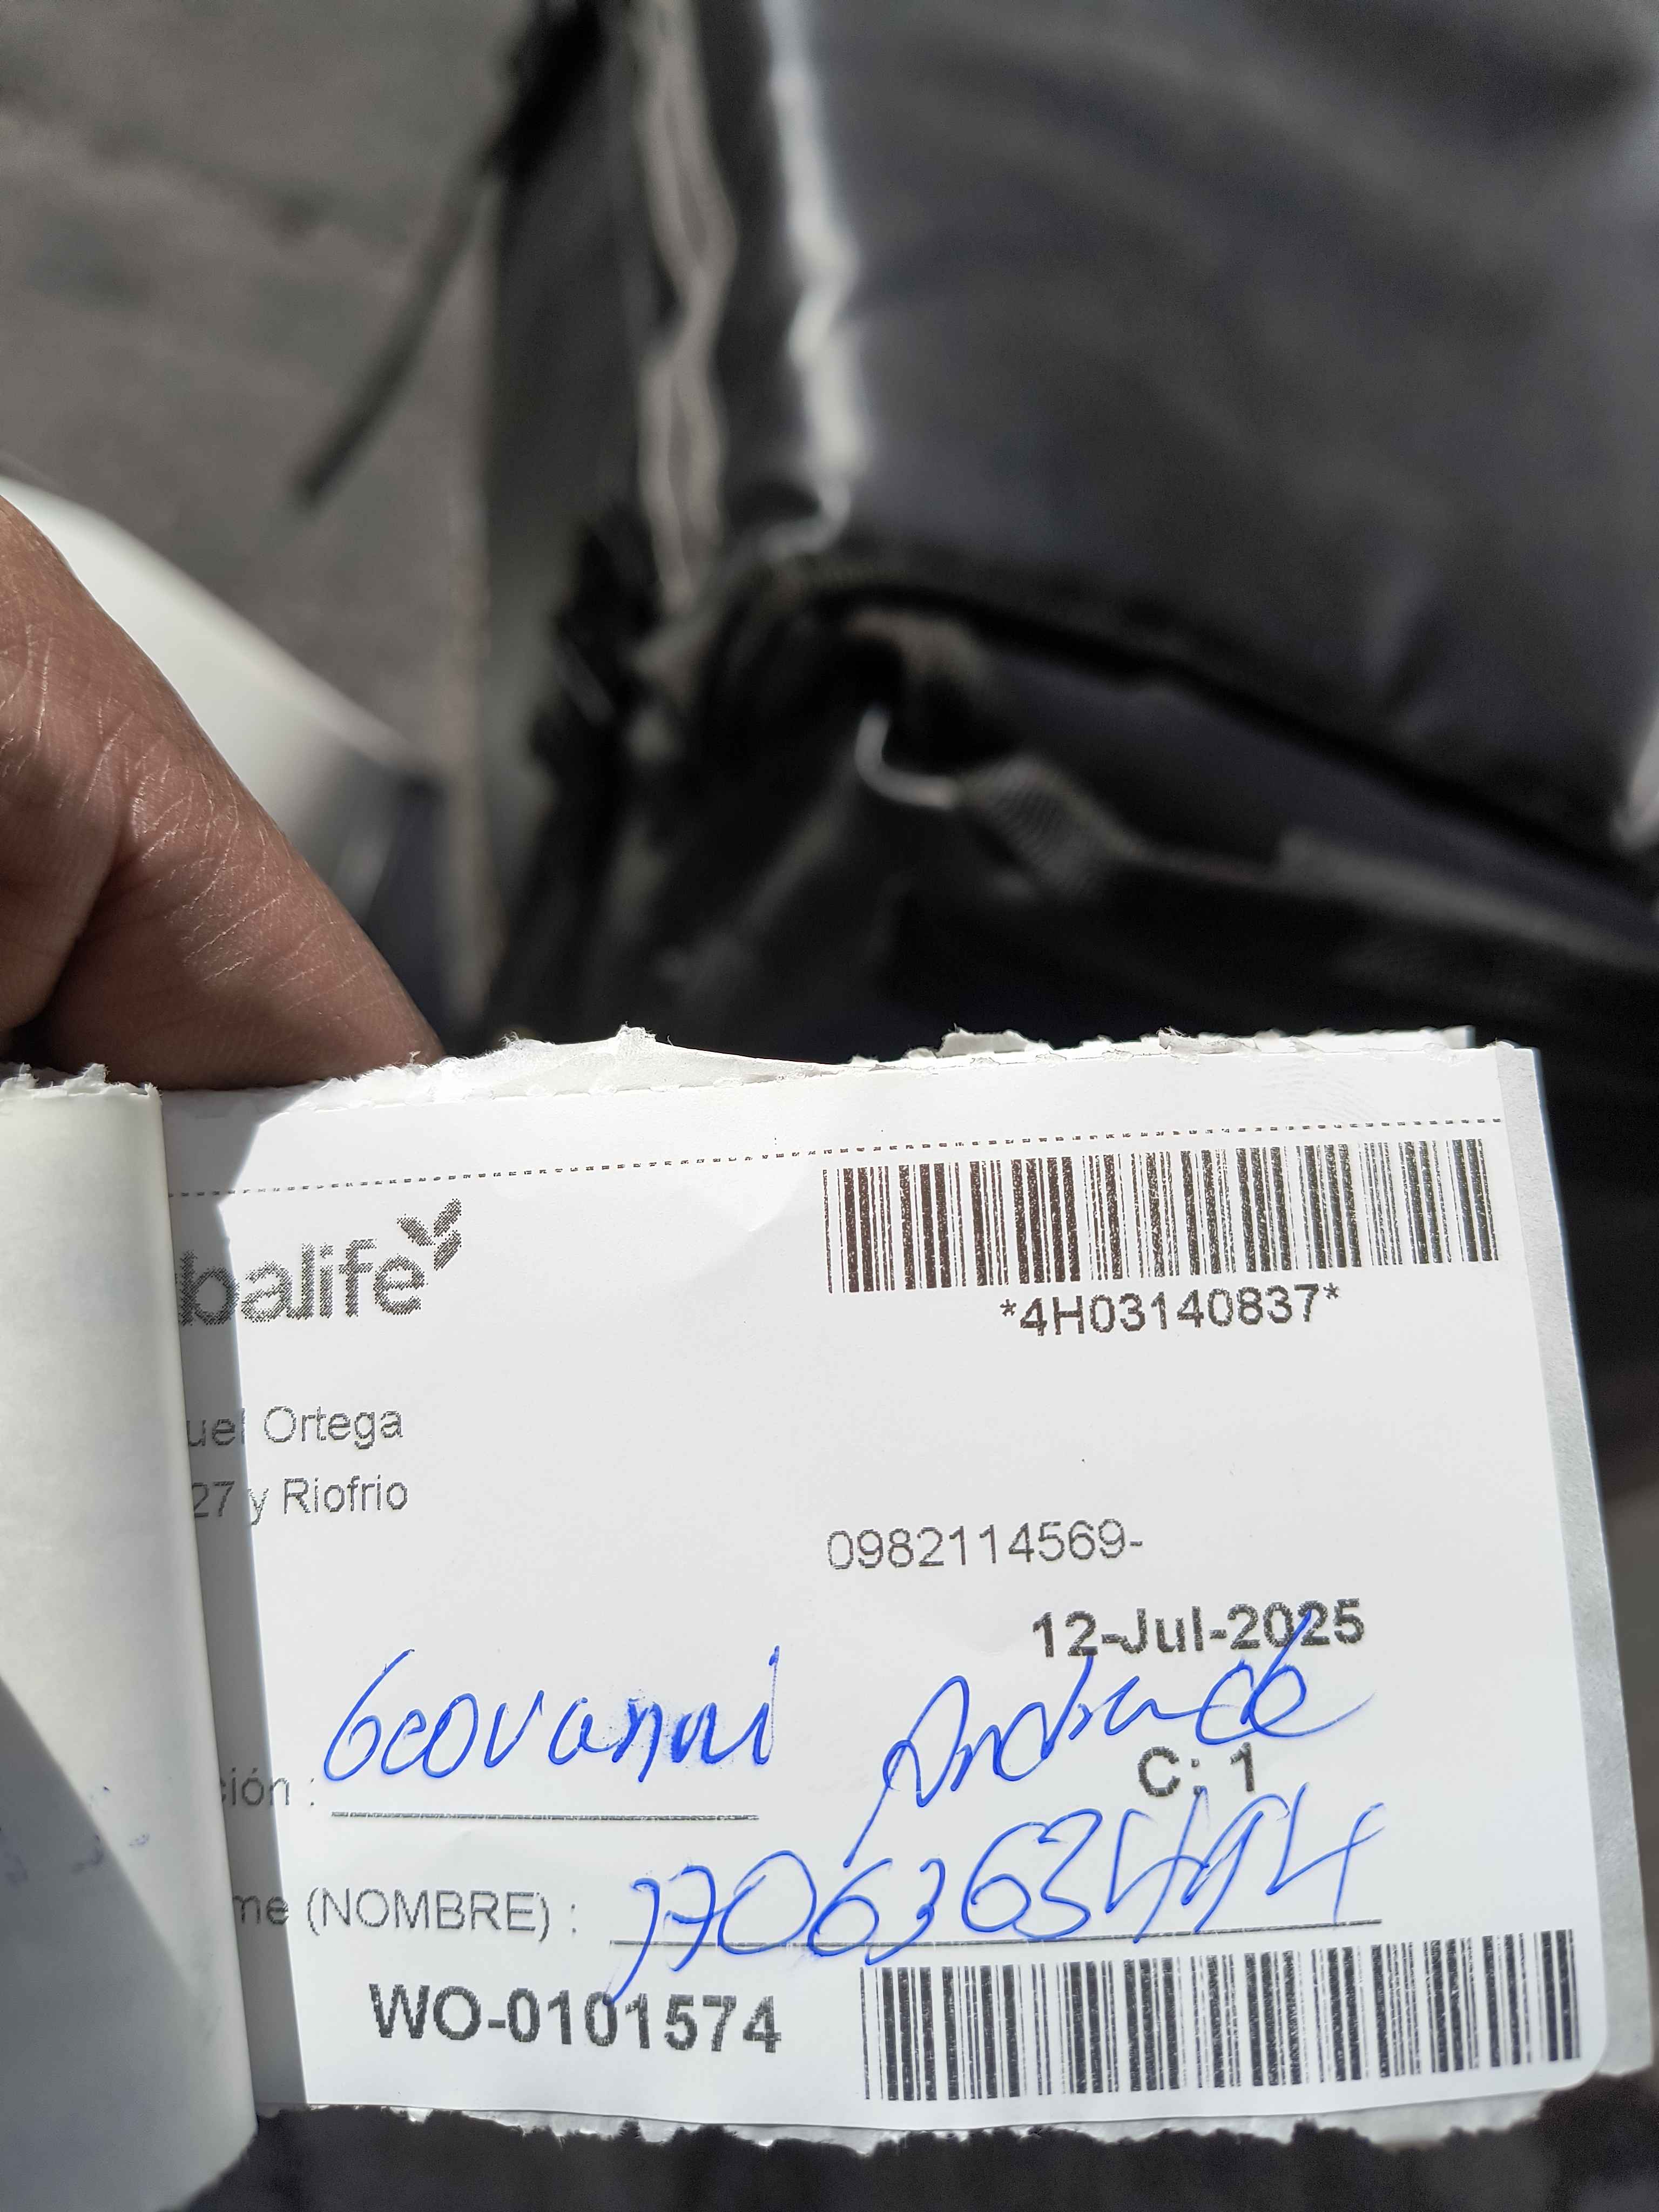 balife
*4H03140837*
uel Ortega
27 y Riofrio
0982114569-
12-Jul-2025
Geovanni Andrade
ción :
C: 1
me (NOMBRE) :
WO-0101574